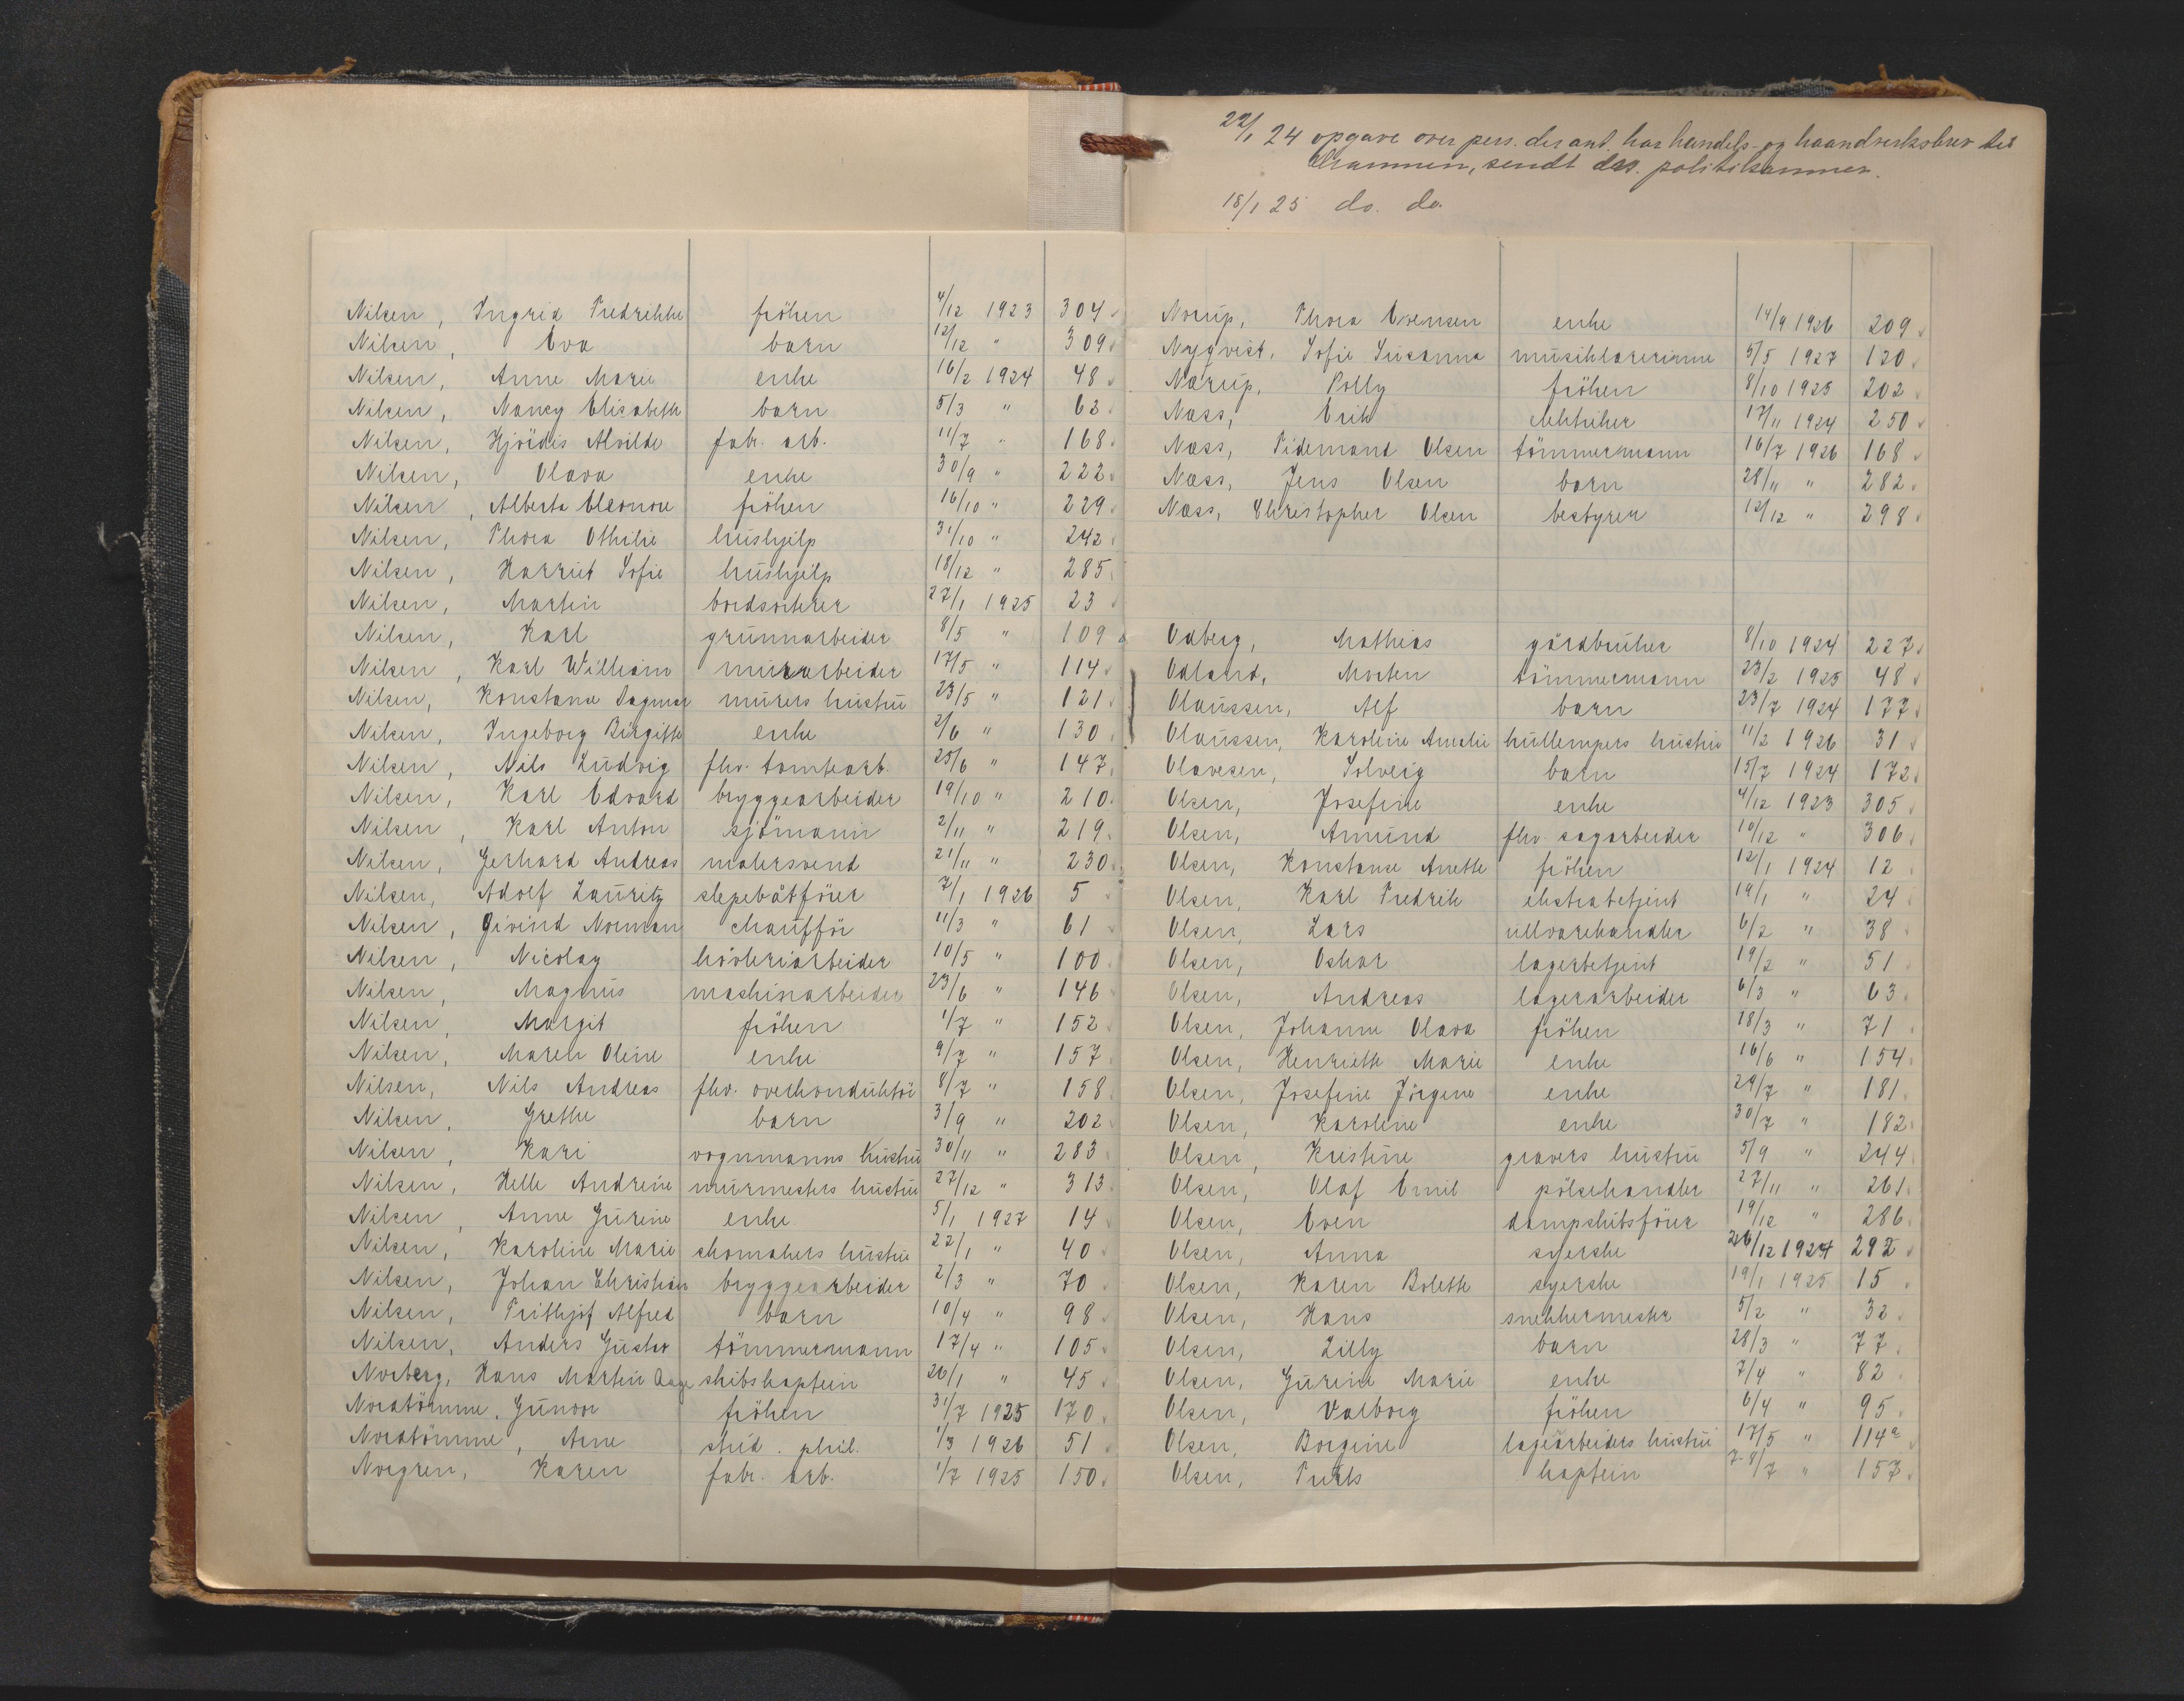 Nilsen, Ingrid Fredrikke fröken 4/12 1923 304
Nilsen, Eva barn 12/12 " 309
Nilsen, Anne Marie enke 16/2 1924 48
Nilsen, Nancy Elisabeth barn 5/3 " 62
Nilsen, Hjördis Alvilde fabr. arb. 11/7 " 168
Nilsen, Olava enke 30/9 " 222
Nilsen, Alberta Eleonore fröken 16/10 " 229
Nilsen, Thora Othilie hushjelp 31/10 " 242
Nilsen, Harriet Sofie hushjelp 18/12 " 285
Nilsen, Martin bordsorterer 27/1 1925 23
Nilsen, Karl grunnarbeider 8/5 " 109
Nilsen, Karl William murarbeider 17/5 " 114
Nilsen, Konstanse Dagmar murers hustru 23/5 " 121
Nilsen, Ingeborg Birgitte enke 2/6 " 130
Nilsen, Nils Ludvig fhv. tomtearb. 25/6 " 147
Nilsen, Karl Edvard bryggearbeider 19/10 " 210
Nilsen, Karl Anton sjömann 2/11 " 219
Nilsen, Gerhard Andreas malersvend 21/11 " 230
Nilsen, Adolf Lauritz slepebåtförer 7/1 1926 5
Nilsen, Øivind Norman chaufför 11/3 " 61
Nilsen, Nicolay hövleriarbeider 10/5 " 100
Nilsen, Magnus maskinarbeider 23/6 " 146
Nilsen, Margit fröken 1/7 " 152
Nilsen, Maren Oline enke 9/7 " 157
Nilsen, Nils Andreas fhv. overkonduktör 8/7 " 158
Nilsen, Grethe barn 3/9 " 202
Nilsen, Kari vognmanns hustru 30/11 " 283
Nilsen, Helle Andrine murmesters hustru 27/12 " 313
Nilsen, Anne Gurine enke 5/1 1927 14
Nilsen, Karoline Marie skomakers hustru 22/1 " 40
Nilsen, Johan Christian bryggearbeider 2/3 " 70
Nilsen, Frithjof Alfred barn 10/4 " 98
Nilsen, Anders Gustav tömmermann 17/4 " 105
Norberg, Hans Martin Aage skibskaptein 26/1 " 45
Nordtömme, Gunvor fröken 31/7 1925 170
Nordtömme, Arne stud. phil. 1/3 1926 51
Norgren, Karen fabr. arb. 1/7 1925 150
22/1 24 opgave over pers. der ant. har handels- og haandverksbrev til
Drammen, sendt drs. politikammer.
18/1 25 do. do.
Norup, Thora Evensen enke 14/9 1926 209
Nyqvist, Sofie Susanna musiklærerinne 5/5 1927 120
Nærup, Polly fröken 8/10 1925 202
Næss, Erik elektriker 17/11 1924 250
Næss, Tidemand Olsen tömmermann 16/7 1926 168
Næss, Jens Olsen barn 28/11 " 282
Næss, Christopher Olsen bestyrer 12/12 " 298
Odberg, Mathias gårdbruker 8/10 1924 227
Odland, Morten tömmermann 23/2 1925 48
Olaussen, Alf barn 23/7 1924 177
Olaussen, Karoline Amalie kullempers hustru 11/2 1926 31
Olavesen, Solveig barn 15/7 1924 172
Olsen, Josefine enke 4/12 1923 305
Olsen, Amund fhv. sagarbeider 10/12 " 306
Olsen, Konstanse Anette fröken 12/1 1924 12
Olsen, Karl Fredrik ekstrabetjent 19/1 " 24
Olsen, Lars ullvarehandler 6/2 " 38
Olsen, Oskar lagerbetjent 19/2 " 51
Olsen, Andreas lagerarbeider 6/3 " 63
Olsen, Johanne Olava fröken 18/3 " 71
Olsen, Henriette Marie enke 16/6 " 154
Olsen, Josefine Jörgine enke 29/7 " 181
Olsen, Karoline enke 30/7 " 182
Olsen, Kristine gravers hustru 5/9 " 244
Olsen, Olaf Emil pölsehandler 27/11 " 261
Olsen, Even dampskibsförer 19/12 " 286
Olsen, Anna syerske 26/12 1924 292
Olsen, Karen Bolette syerske 19/1 1925 15
Olsen, Hans snekkermester 5/2 " 32
Olsen, Lilly barn 28/3 " 77
Olsen, Gurine Marie enke 7/4 " 82
Olsen, Valborg fröken 6/4 " 95
Olsen, Borgine lagerarbeiders hustru 17/5 " 114a
Olsen, kaptein 7-8/7 " 157